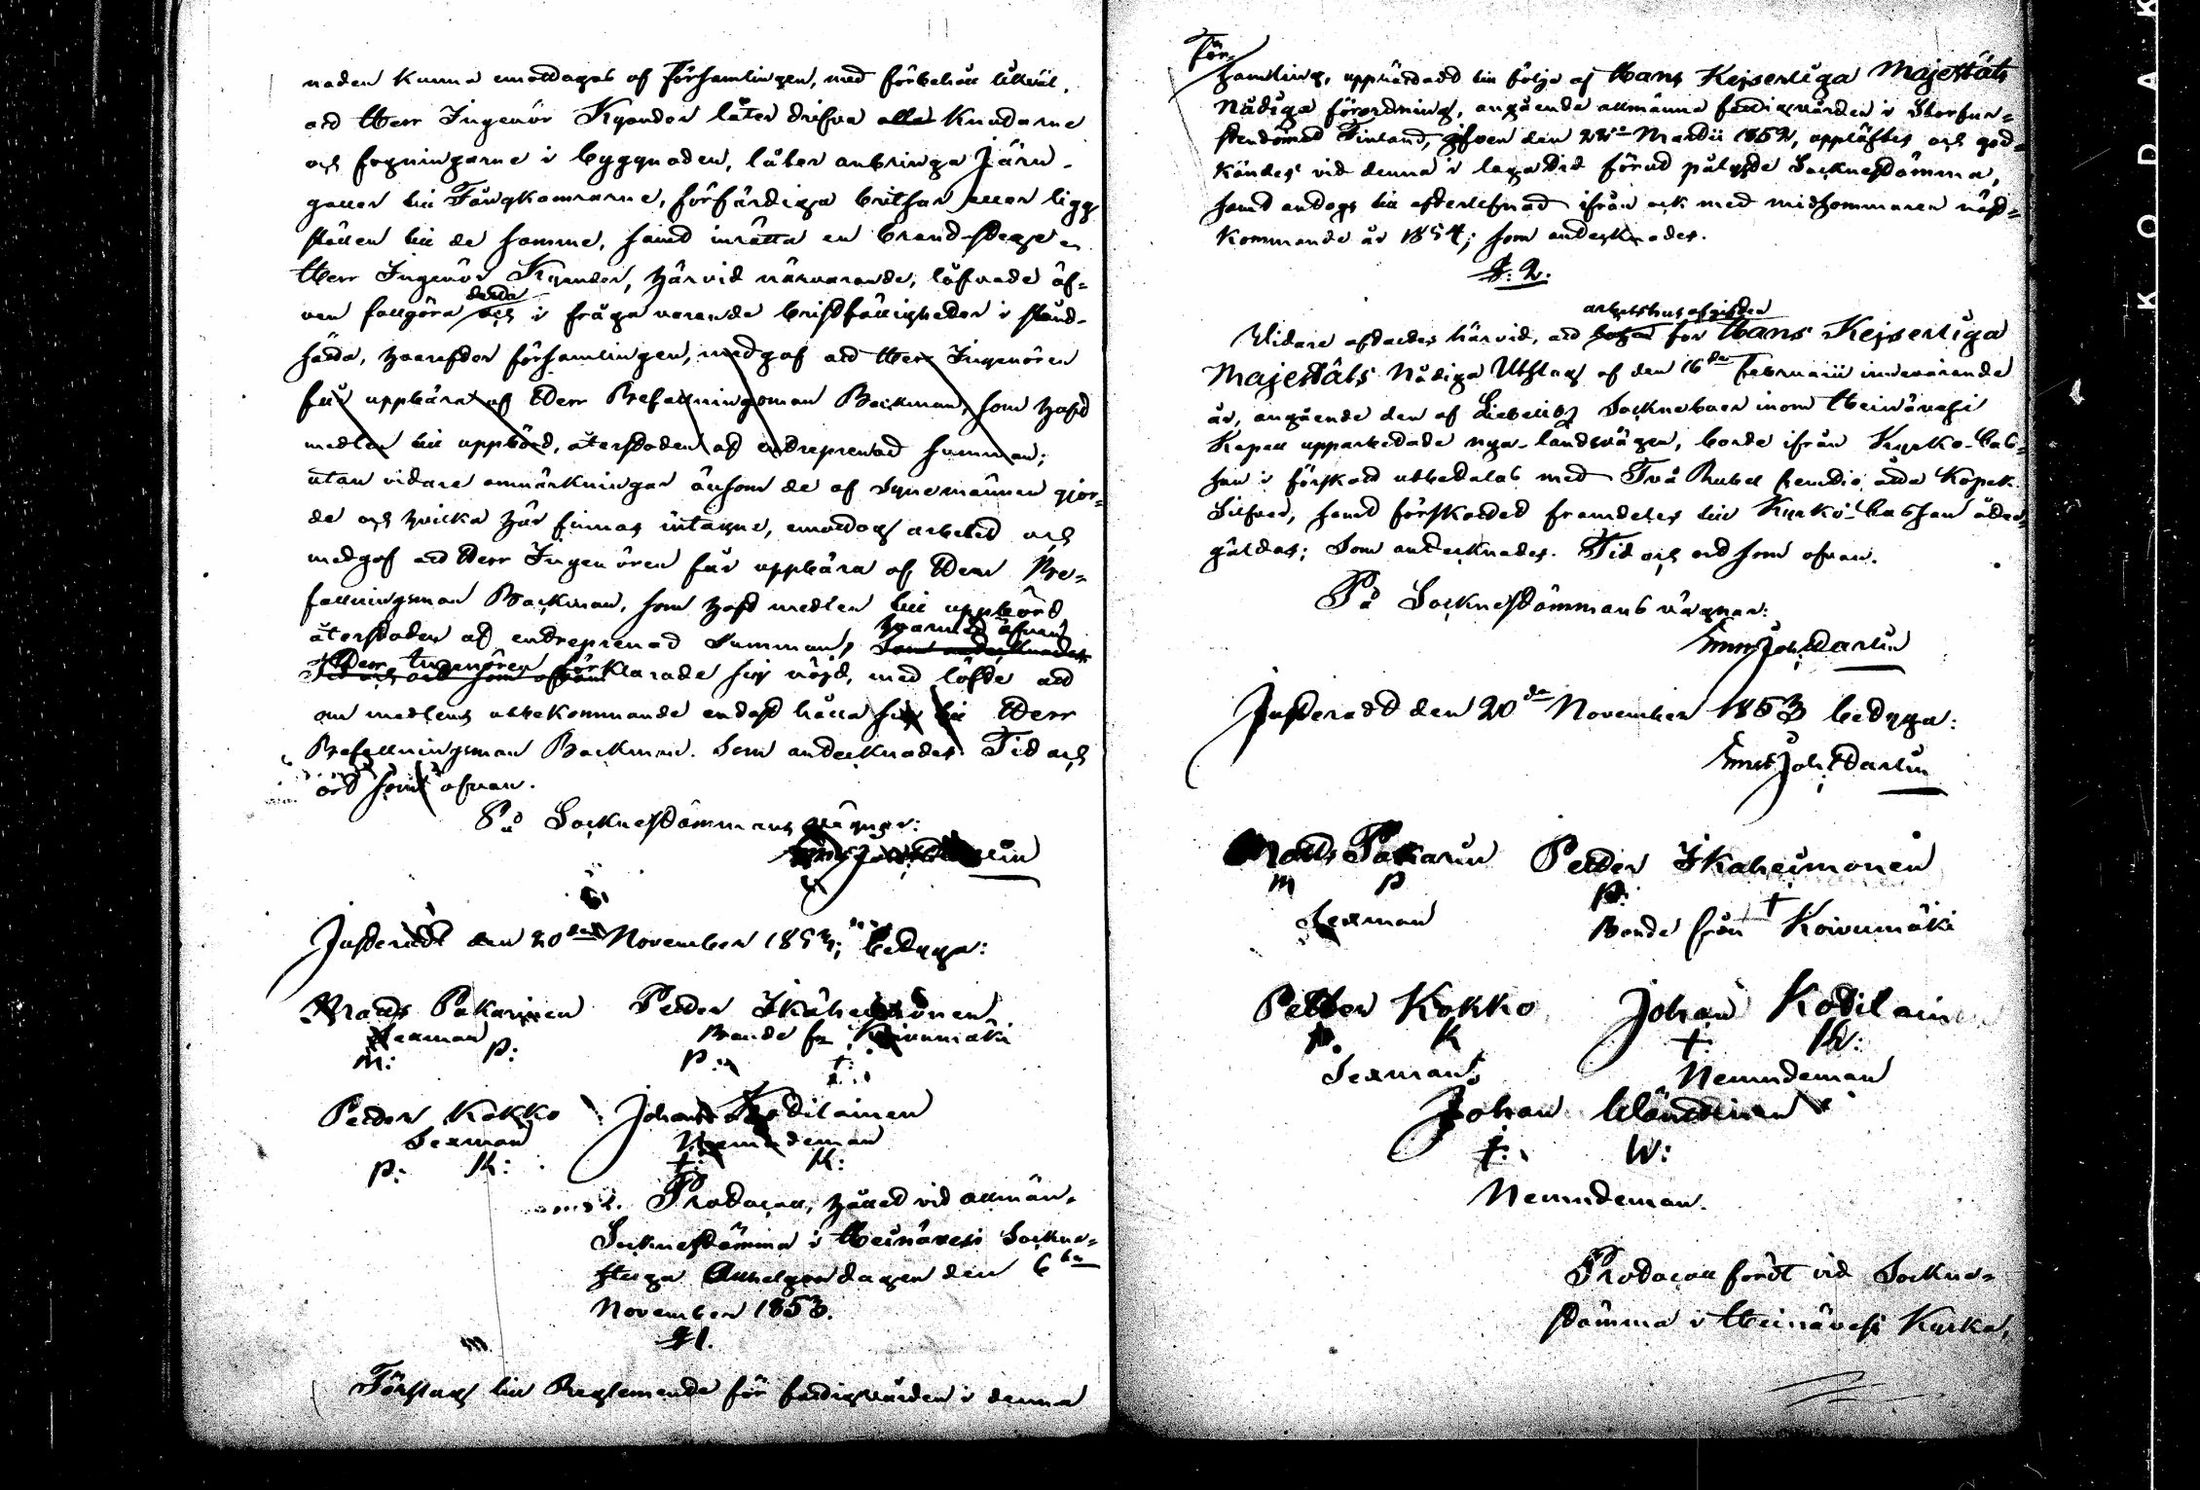 naden kunna emottagas af Församlingen, med förbehåll likväl,
att Herr Ingeniör Kyander låter drifva alla knutarne
och fogningarne i byggnaden, låter anbringa Järn-
galler till Fångkamrarne, förfärdiga britsar eller ligg
ställen till de samme, samt inrätta en brandstege.
Herr Ingeniör Kyander, härvid närvarande, lofvade äf-
ven fullgöra detta och i fråga varande bristfälligheter i stånd-
sätta, hvarefter församlingen, medgaf att Herr Ingeniören
får uppbära af Herr Befallningsman Backman, som haft
medlen till uppbörd, återstoden af entreprenad summan;
utan vidare anmärkningar än som de af Synemännen gjor-
de och hvilka här finnas intagne, emottogs arbetet och
medgaf att Herr Ingeniören får uppbära af Herr Be-
fallningsman Backman, som haft medlen till uppbörd
återstoden af entreprenad Summan, hvarmed äfven
som antecknades
Herr Ingeniören förklarade sig nöjd, med löfte att
Tid och ort som ofvan
om medlens utbekommande endast hålla sig till Herr
Befallningsman Backman. Som antecknades. Tid och
ort som ofvan.
På Socknestämmans vägnar:
Justeradt den 20de November 1853; betyga:
Matts Pakarinen Petter Ikäheimonen
Sexman Bonde fr. Koivumäki
M: P: P: +:
Petter Kokko Johan Kotilainen
Sexman Nämndeman
P: K: +: K:
Protocoll, hållet vid allmän
Socknestämma i Heinävesi Sockne-
stuga Allhelgonadagen den 6te
November 1853.
§ 1.
Förslag till Reglemente för fattigvården i denna
För-
samling, upprättadt till följe af Hans Kejserliga Majestäts
Nådiga förordning, angående allmänna fattigvården i Storfur-
stendömet Finland, gifven den 22dra Martii 1852, upplästes och god-
kändes vid denna i laga tid förut pålyste Socknestämma,
samt antogs till efterlefnad ifrån och med midsommaren näst-
kommande år 1854; som antecknades.
§: 2.
arbetshusafgiften
Vidare aftaltes härvid, att for Hans Kejserliga
Majestäts Nådiga Utslag af den 16de Februarii innevarande
år, angående den af Libelits Sockneboer inom Heinävesi
Kapell upparbetade nya landsvägen, borde ifrån Kyrko-Cas-
san i förskott utbetalas med Två Rubel femtio åtta Kopek
Silfver, samt förskottet framdeles till Kyrko-Cassan åter-
gäldas; Som antecknades. Tid och ort som ofvan.
På Socknestämmans vägnar:
Justeradt den 20de November 1853 betyga:
Matts Pakarin Petter Ikäheimonen
M P P: +
Sexman Bonde från Koivumäki
Petter Kokko Johan Kotilainen
P. K +: K:
Sexman Nemndeman
Johan Wänttinen
+: W:
Nemndeman.
Protocoll fördt vid Sockne-
stämma i Heinävesi Kyrka,
KODAK